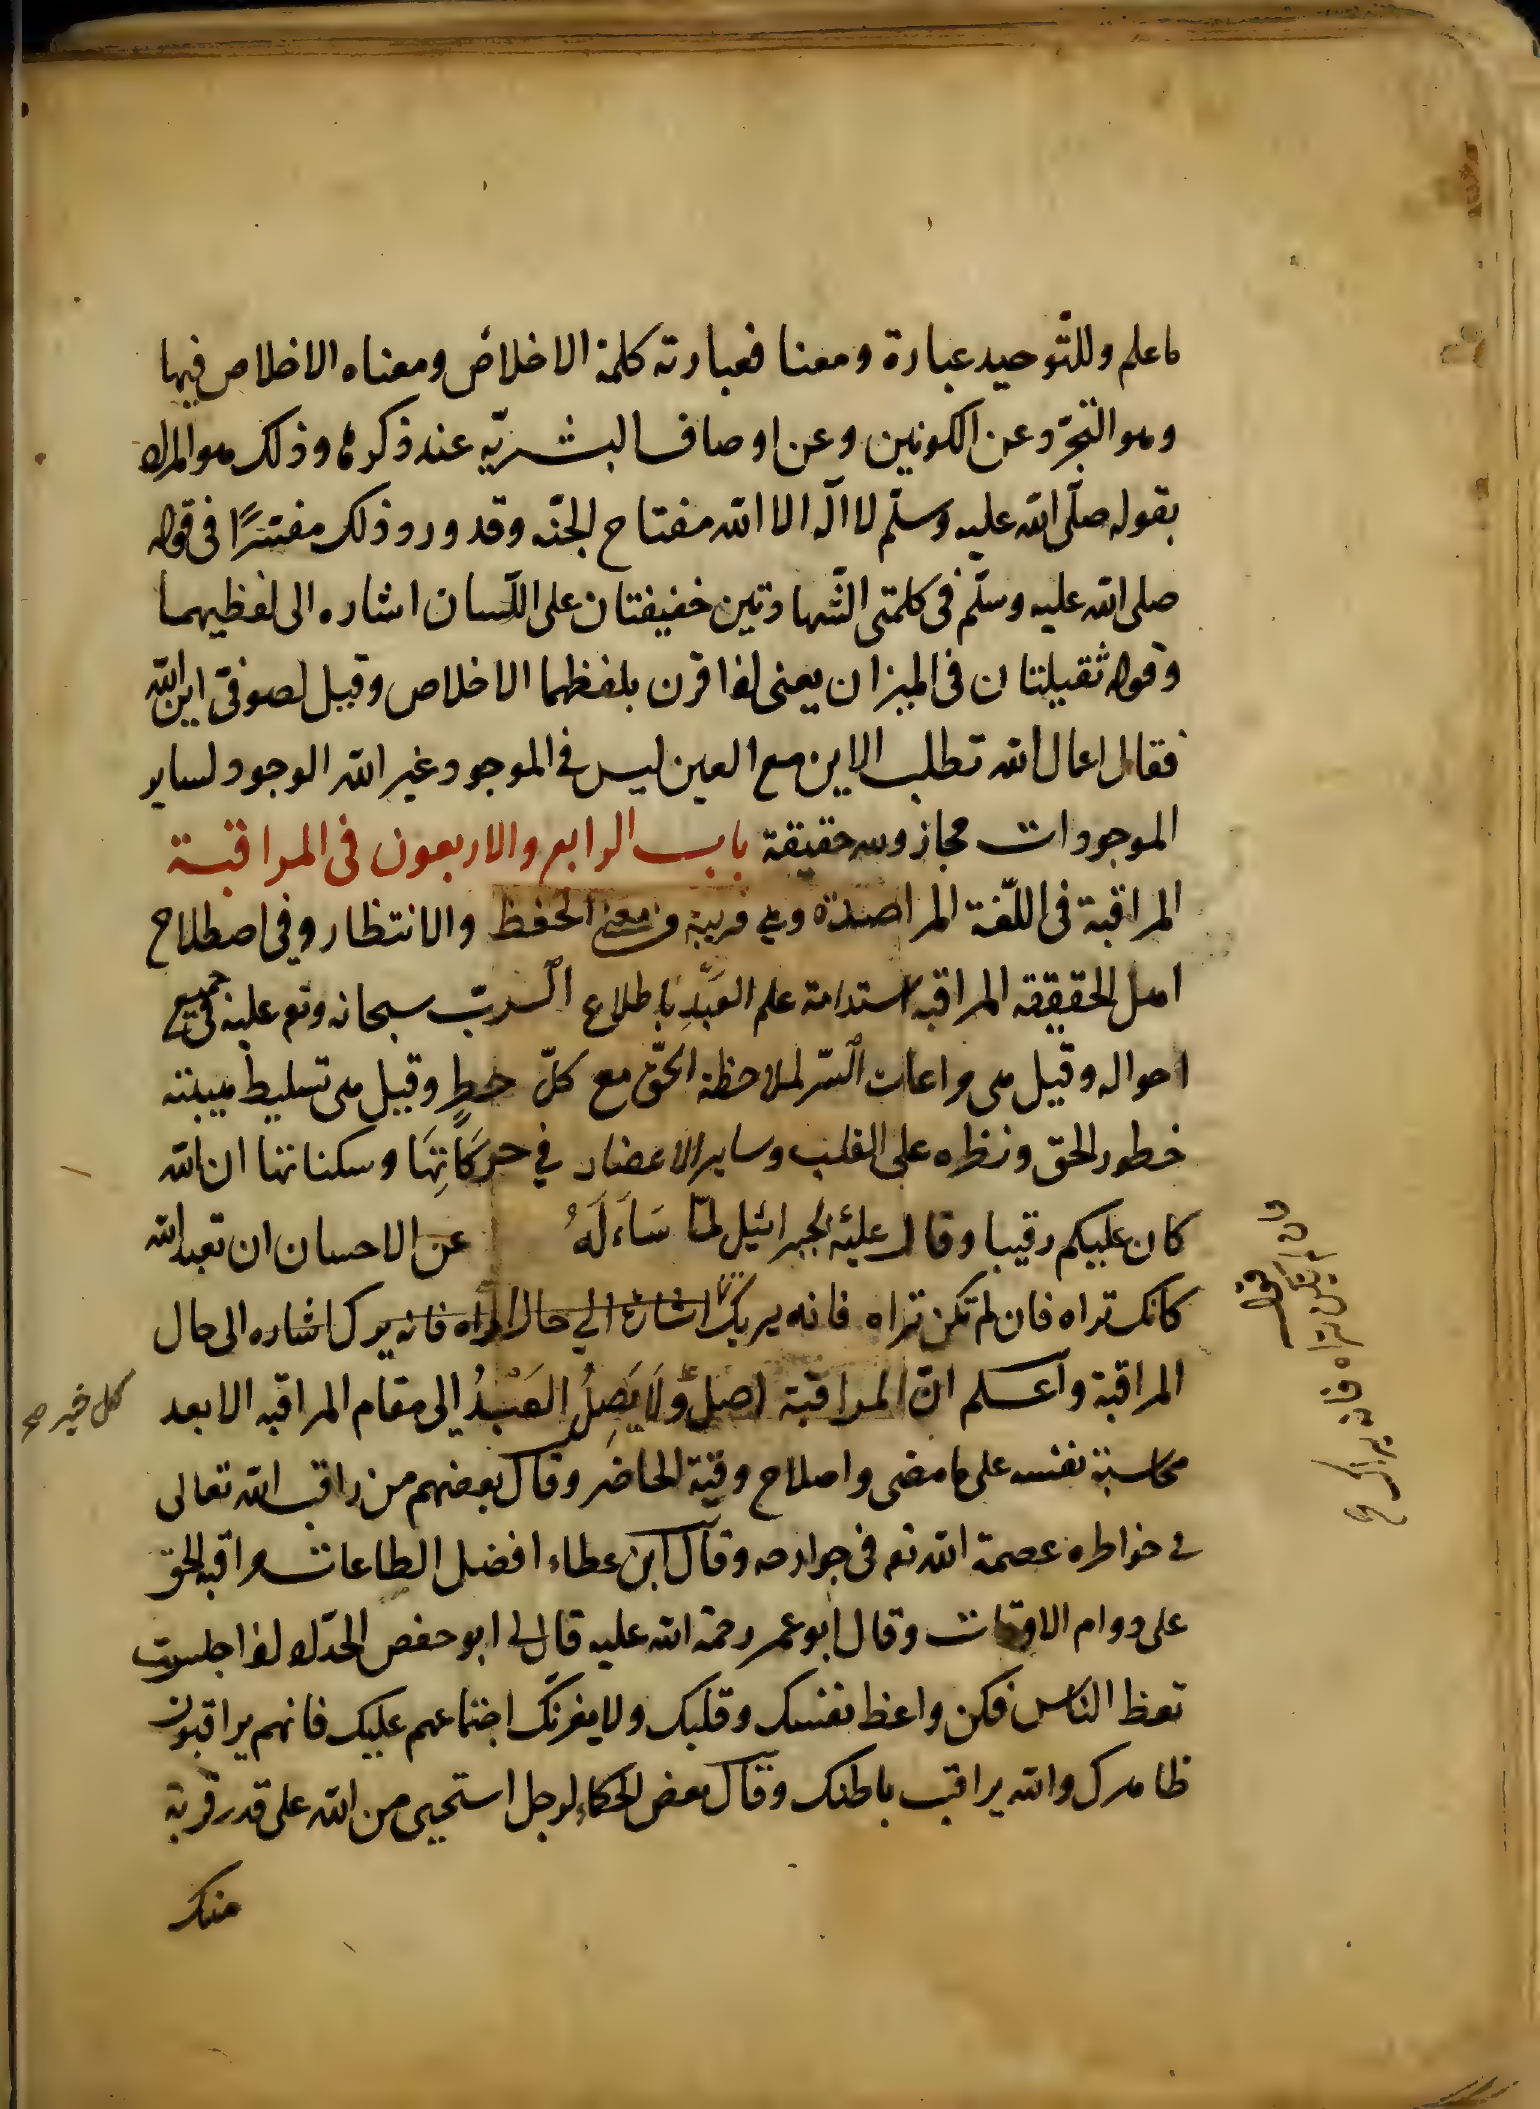 ما علم وللتّوحيد عبارة ومعنا فعبارته كلمة الاخلاص ومعناه الاخلاص فيها
وهو التجرّد عن الكونين وعن اوصاف البشريّه عند ذكرها وذلك هو المراد
بقوله صلّى الله عليه وسلّم لا اله الا الله مفتاح الجنّه وقد ورد ذلك مفسّرًا فى قوله
صلى الله عليه وسلّم فى كلمتى الشّهادتين خفيفتان على اللّسان اشاره الى لفظيهما
وقوله ثقيلتان فى الميزان يعنى اذا قرن بلفظهما الاخلاص وقيل لصوفىّ اين الله
فقال الله تطلب الاين مع العين ليس فى الموجود غير الله الوجود لساير
الموجودات مجاز وله حقيقة باب الرابع والاربعون فى المراقبة
المراقبة فى اللّغة المراصدة وهى قريبة من معنى الحفظ والانتظار وفى اصطلاح
اهل الحقيقه المراقبه استدامة علم العَبْدِ باطلاع الربّ سبحانه وتعم عليه فى جميع
احواله وقيل هى مراعات السّر لملاحظة الحقّ مع كلّ خطٍر وقيل هى تسليط هيبته
خطور الحقّ ونظره على القلب وساير الاعضاء فى حركَاتِهَا وسكناتها ان الله
كان عليكم رقيبا وقال عليه لجبرائيل لمّا سَاَءلَهُ عن الاحسان ان تعبد الله
كانك تراه فان لم تكن تراه فانه يريك اشارة الي حال المراه فانه يرك اشاره الى حال
المراقبة واعلم انّ المراقبة اصل وَلَا يَصِلُ العَبْدُ الى مقام المراقبه الا بعد
كل خير صح
محاسبة نفسه على ما مضى واصلاح وقتة الحاضر وقال بعضهم من راقب الله تعالى
فى خواطره عصمة الله تعم فى جوارحه وقال ابن عطاء افضل الطاعات مراقبه الحق
على دوام الاوقات وقال ابو عمر رحمة الله عليه قال لى ابو حفص الحدّاد اذا جلست
تعظ الناس فكن واعظا نفسك وقلبك ولا يغرنّك اجتماعهم عليك فانهم يراقبون
ظاهرك والله يراقب باطنك وقال بعض الحكماء لرجل استحيى من الله على قدر قربة
منك
فان لم تكن تراه فانه يراك صح